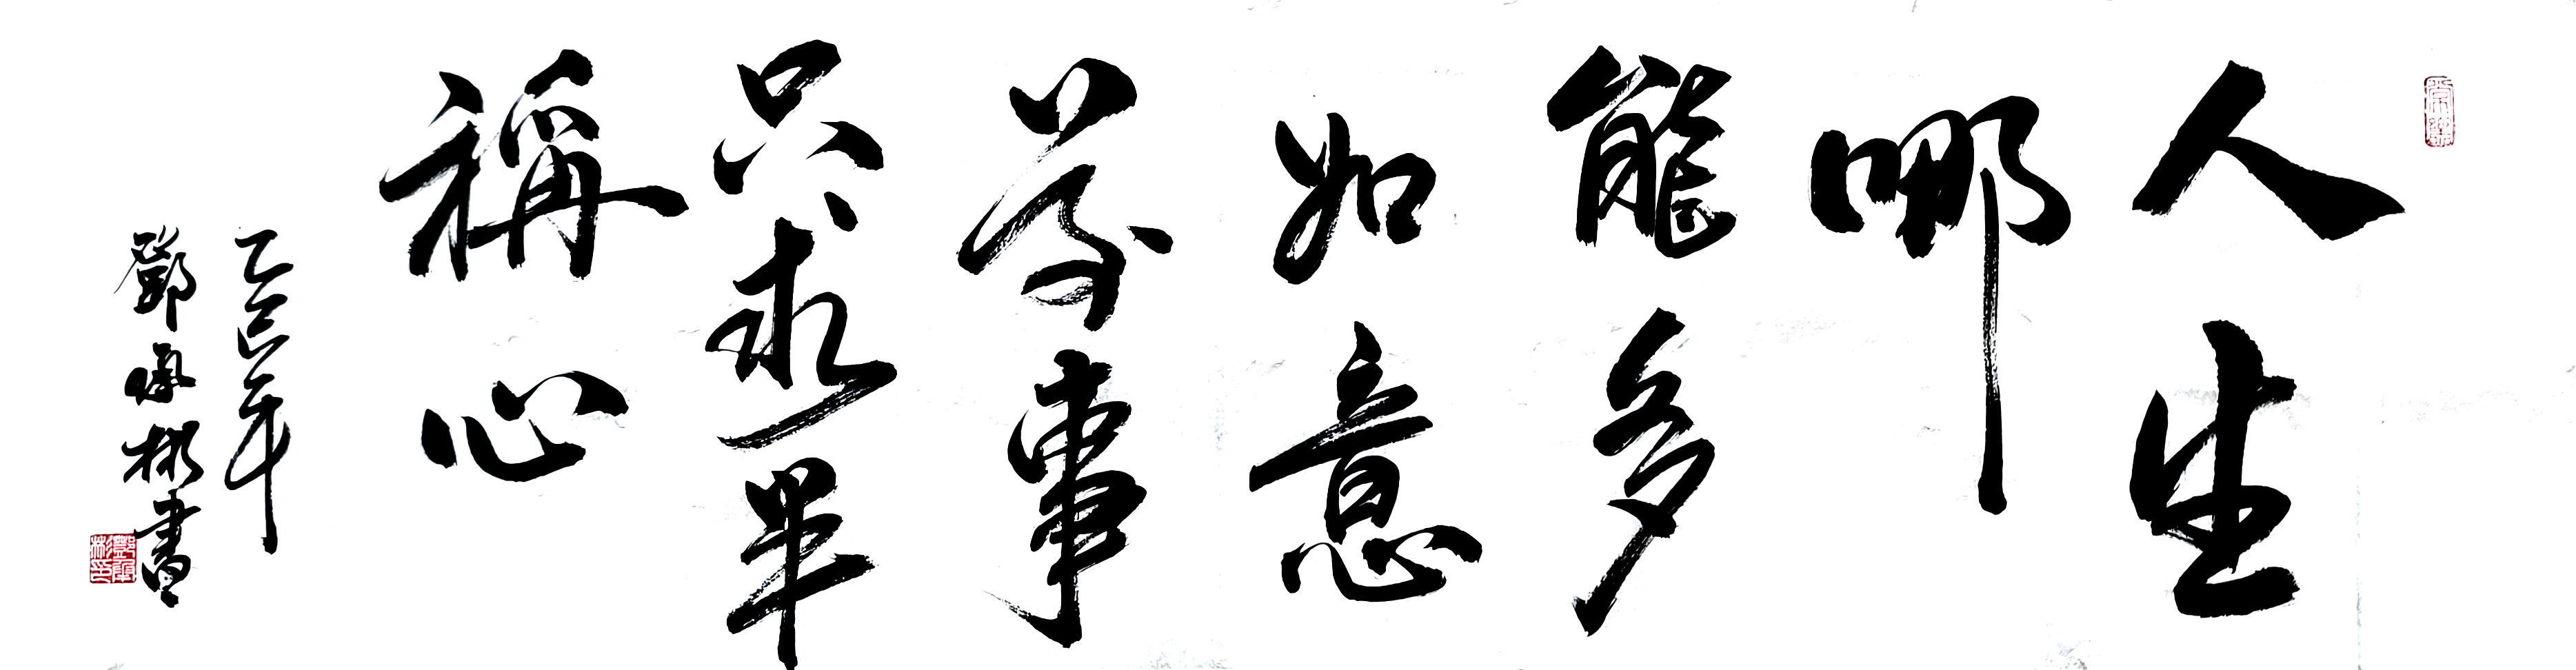 人生
哪
能多
如意
萬事
只求半
稱心
乙巳年
鄧 彬書